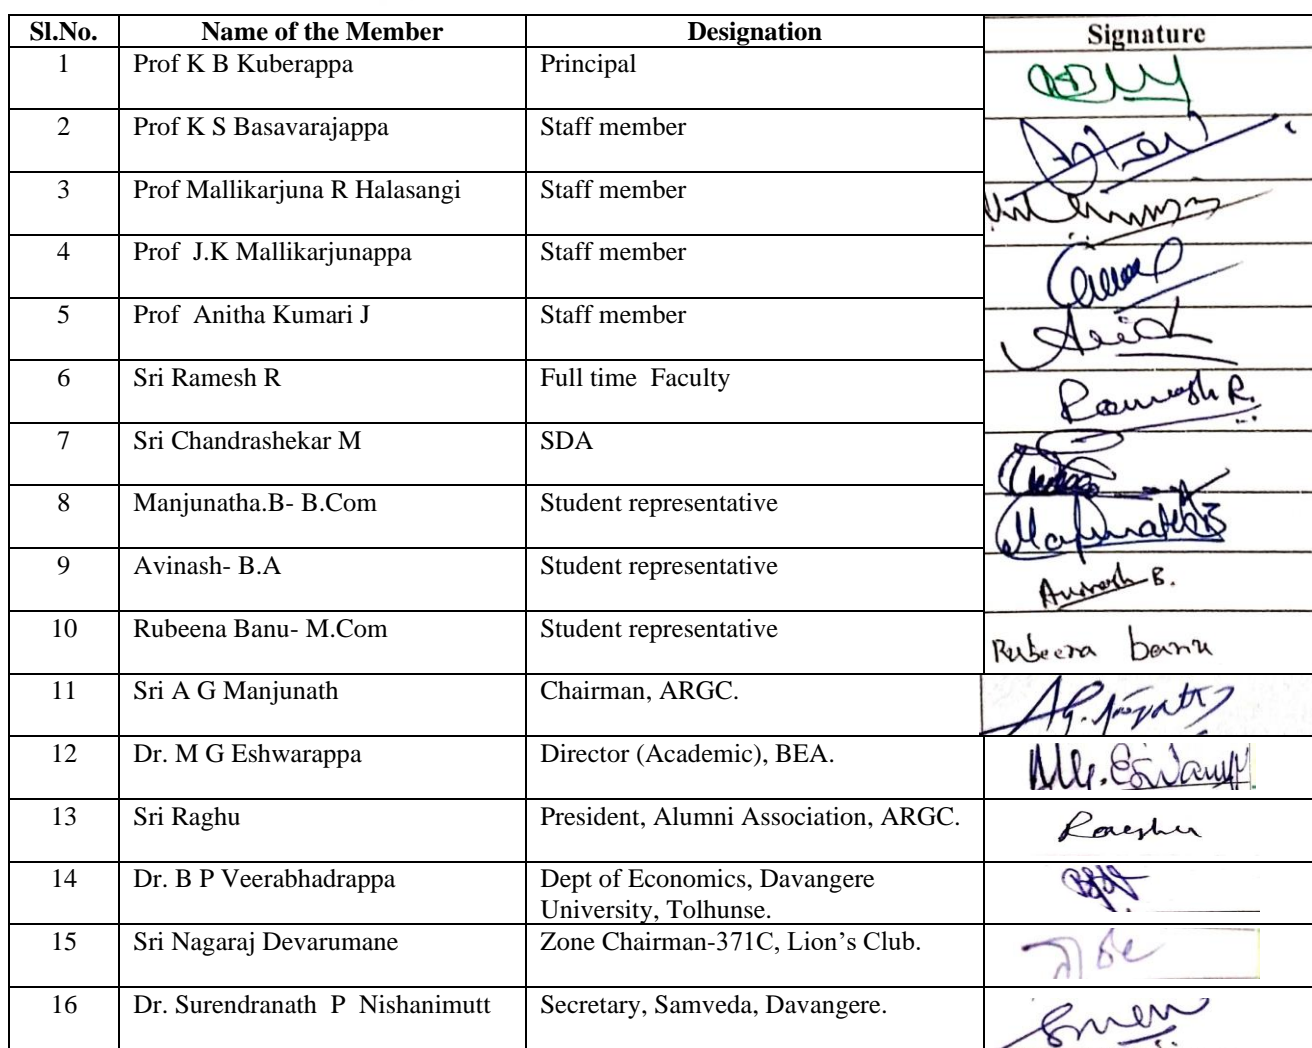 Sl.No. Name of the Member Designation Signature
1 Prof K B Kuberappa Principal
2 Prof K S Basavarajappa Staff member
3 Prof Mallikarjuna R Halasangi Staff member
4 Prof J.K Mallikarjunappa Staff member
5 Prof Anitha Kumari J Staff member
6 Sri Ramesh R Full time Faculty Ramesh R.
7 Sri Chandrashekar M SDA
8 Manjunatha.B- B.Com Student representative Manjunatha B
9 Avinash- B.A Student representative Avinash B.
10 Rubeena Banu- M.Com Student representative Rubeena banu
11 Sri A G Manjunath Chairman, ARGC.
12 Dr. M G Eshwarappa Director (Academic), BEA.
13 Sri Raghu President, Alumni Association, ARGC.
14 Dr. B P Veerabhadrappa Dept of Economics, Davangere
University, Tolhunse.
15 Sri Nagaraj Devarumane Zone Chairman-371C, Lion’s Club.
16 Dr. Surendranath P Nishanimutt Secretary, Samveda, Davangere.